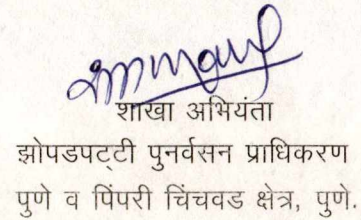 शाखा अभियंता
झोपडपट्टी पुनर्वसन प्राधिकरण
पुणे व पिंपरी चिंचवड क्षेत्र, पुणे.